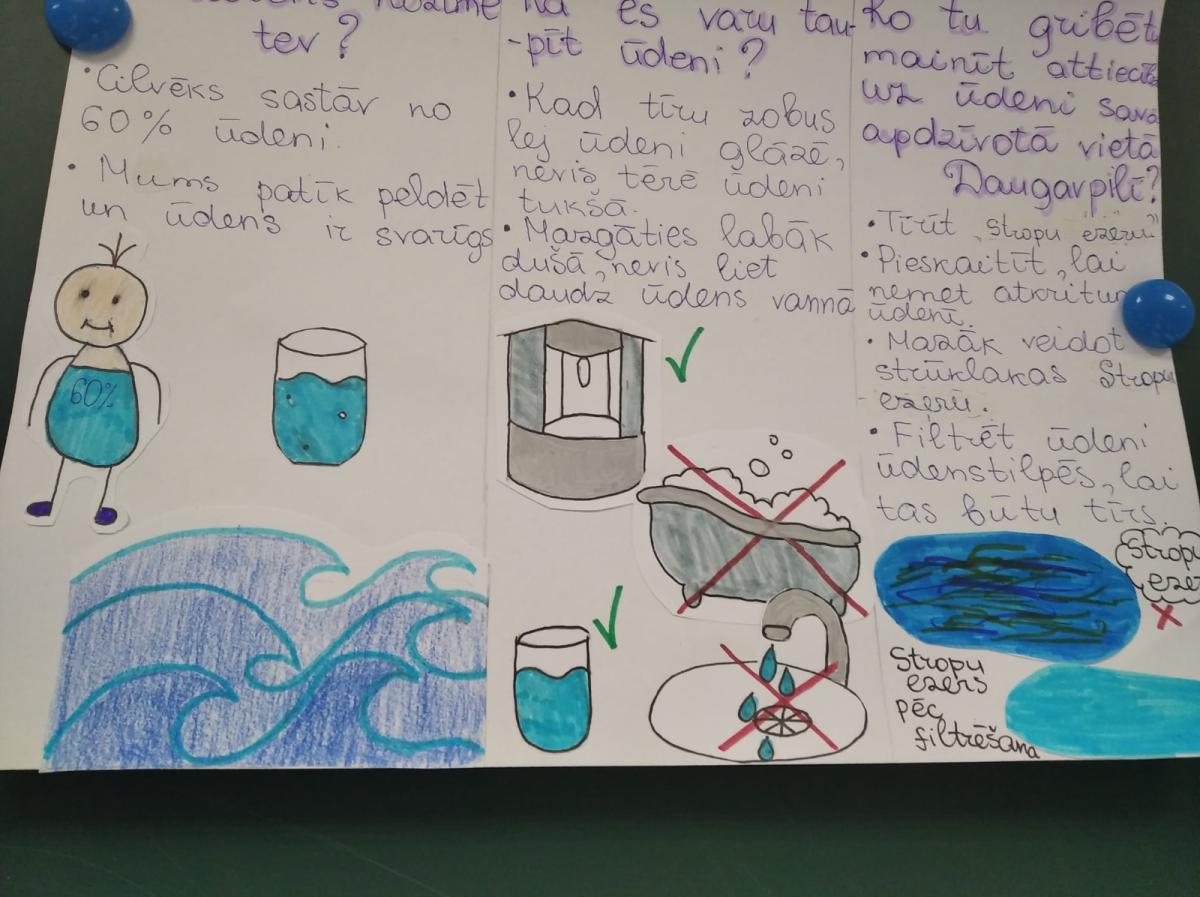 tev?
• Cilvēks sastāv no
60% ūdeni.
• Mums patīk peldēt
un ūdens ir svarīgs
60%
Kā es varu tau-
-pīt ūdeni?
• Kad tīru zobus
lej ūdeni glāzē,
nevis tērē ūdeni
tukšā.
• Mazgāties labāk
dušā, nevis liet
daudz ūdens vannā
Ko tu gribētu
mainīt attiecīb
uz ūdeni savā
apdzīvotā vietā
Daugavpilī?
• Tīrīt "Stropu ezeru"
• Pieskaitīt, lai
nemet atkritum
ūdenī.
• Mazāk veidot
strūklakas Stropu
ezeru.
• Filtrēt ūdeni
ūdenstilpēs, lai
tas būtu tīrs.
Stropu
eze
Stropu
ezers
pēc
filtrēšana